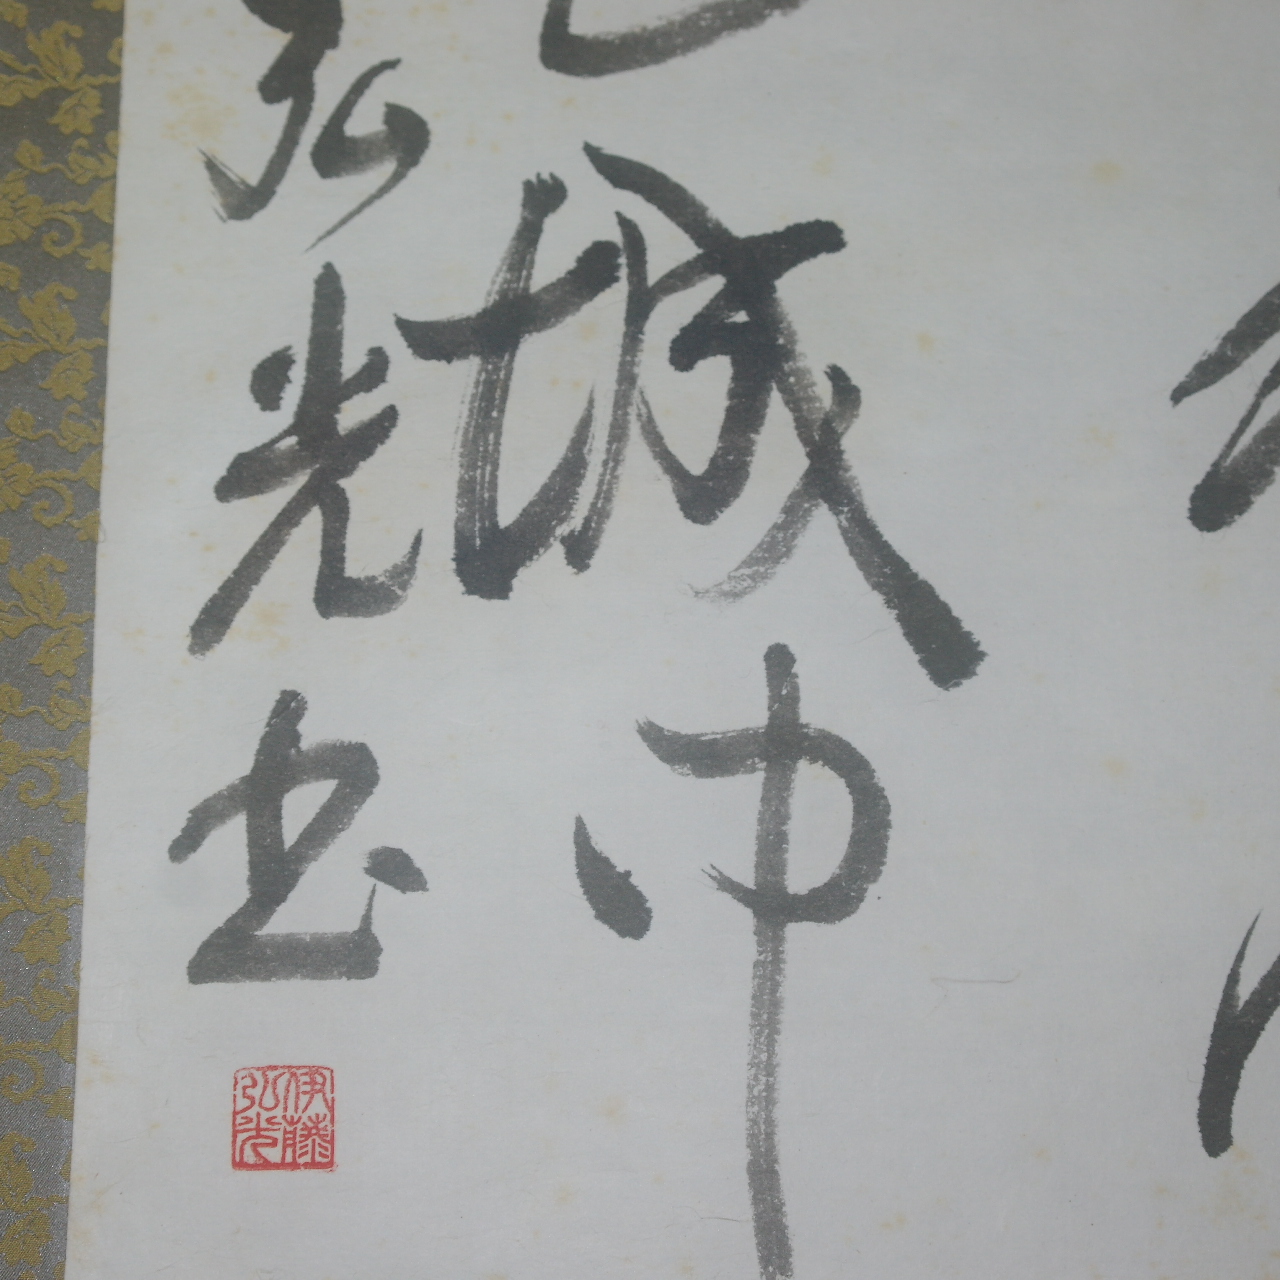 城中
弘光書
伊藤
弘光